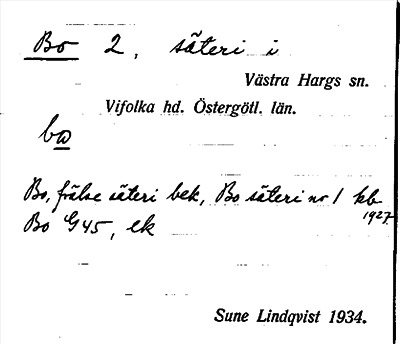 Bo 2, säteri i
Västra Hargs sn.
Vifolka hd. Östergötl. län.
bω
Bo, frälse säteri bek, Bo säteri nr 1 kb 1927
Bo G45, ek
Sune Lindqvist 1934.